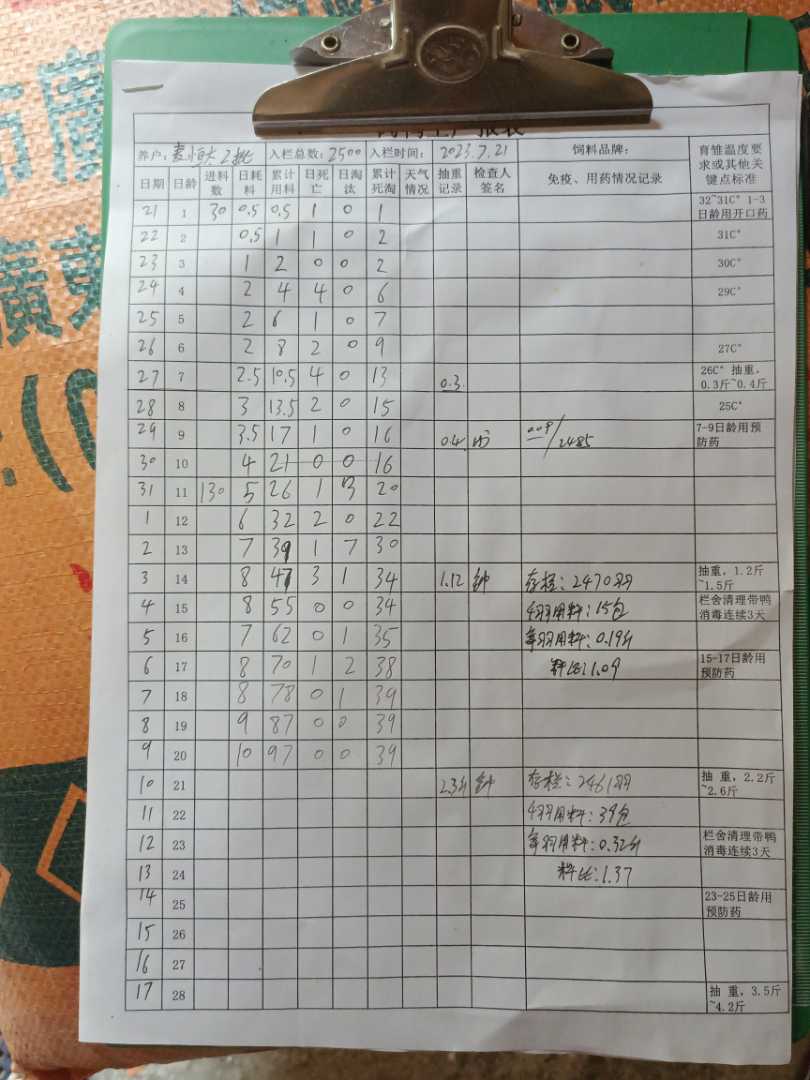 养户: 2批 入栏总数: 2500 入栏时间: 2023.7.21 饲料品牌: 育雏温度要求或其他关键点标准
日期 日龄 进料数 日耗料 累计用料 日死亡 日淘汰 累计死淘 天气情况 抽重记录 检查人签名 免疫、用药情况记录
21 1 30 0.5 0.5 1 0 1 32~31C° 1-3日龄用开口药
22 2 0.5 1 1 0 2 31C°
23 3 1 2 0 0 2 30C°
24 4 2 4 4 0 6 29C°
25 5 2 6 1 0 7
26 6 2 8 2 0 9 27C°
27 7 2.5 10.5 4 0 13 0.3 26C° 抽重，0.3斤~0.4斤
28 8 3 13.5 2 0 15 25C°
29 9 3.5 17 1 0 16 0.4 2485 7-9日龄用预防药
30 10 4 21 0 0 16
31 11 130 5 26 1 3 20
1 12 6 32 2 0 22
2 13 7 39 1 7 30
3 14 8 47 3 1 34 1.12 钟 存栏: 2470羽 抽重，1.2斤~1.5斤
4 15 8 55 0 0 34 用料: 15包 栏舍清理带鸭消毒连续3天
5 16 7 62 0 1 35 每羽用料: 0.19斤
6 17 8 70 1 2 38 料比: 1.09 15-17日龄用预防药
7 18 8 78 0 1 39
8 19 9 87 0 0 39
9 20 10 97 0 0 39
10 21 2.3斤 钟 存栏: 2461羽 抽 重，2.2斤~2.6斤
11 22 用料: 39包
12 23 每羽用料: 0.32斤 栏舍清理带鸭消毒连续3天
13 24 料比: 1.37
14 25 23-25日龄用预防药
15 26
16 27
17 28 抽 重，3.5斤~4.2斤